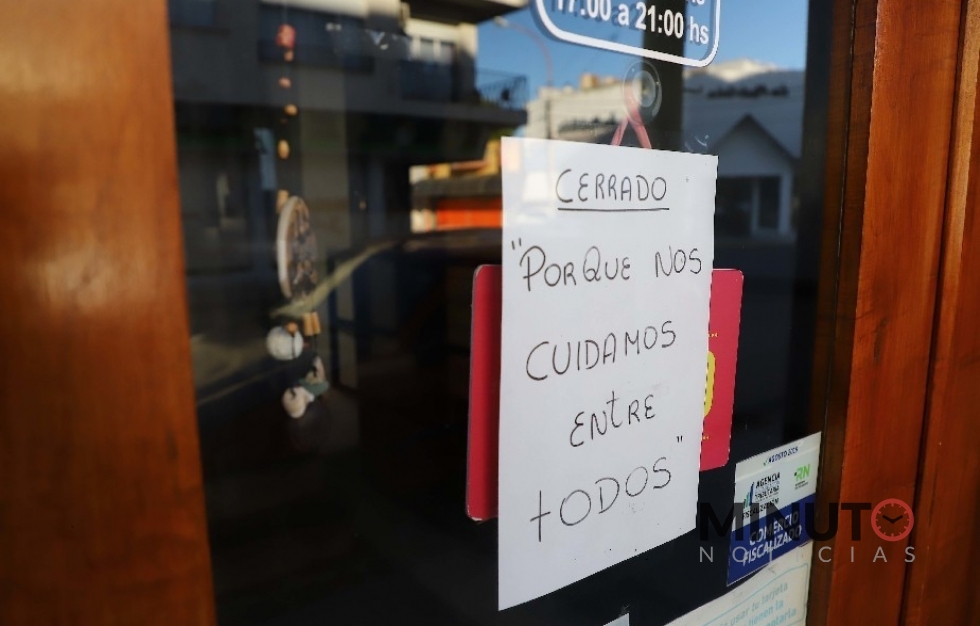 17:00 a 21:00 hs
CERRADO
"PORQUE NOS
CUIDAMOS
ENtRE
tODOS"
AGOSTO
RN
AGENCIA
COMERCIO
FISCALIZADO
MINUTO
NOTICIAS